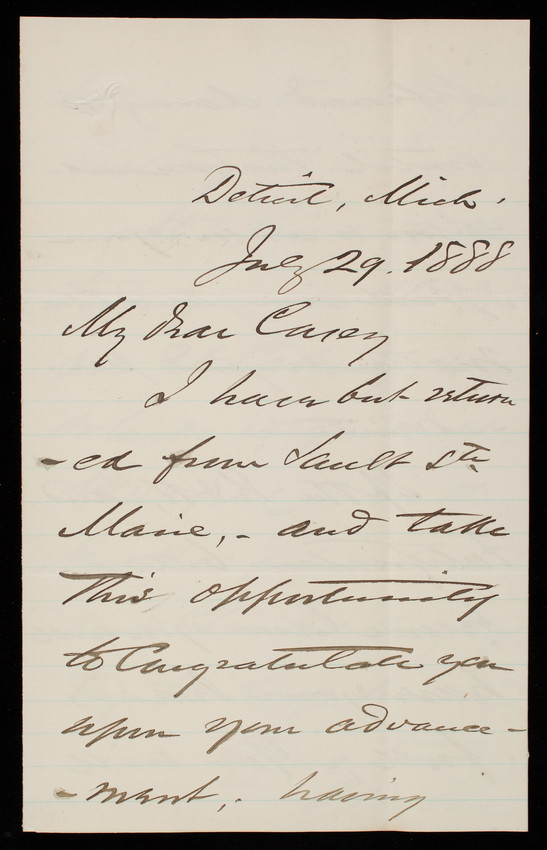 Detroit, Mich.
July 29. 1888
My dear Casey
I have but return
-ed from Sault Ste
Marie, - and take
this opportunity
to Congratulate you
upon your advance-
-ment, - having